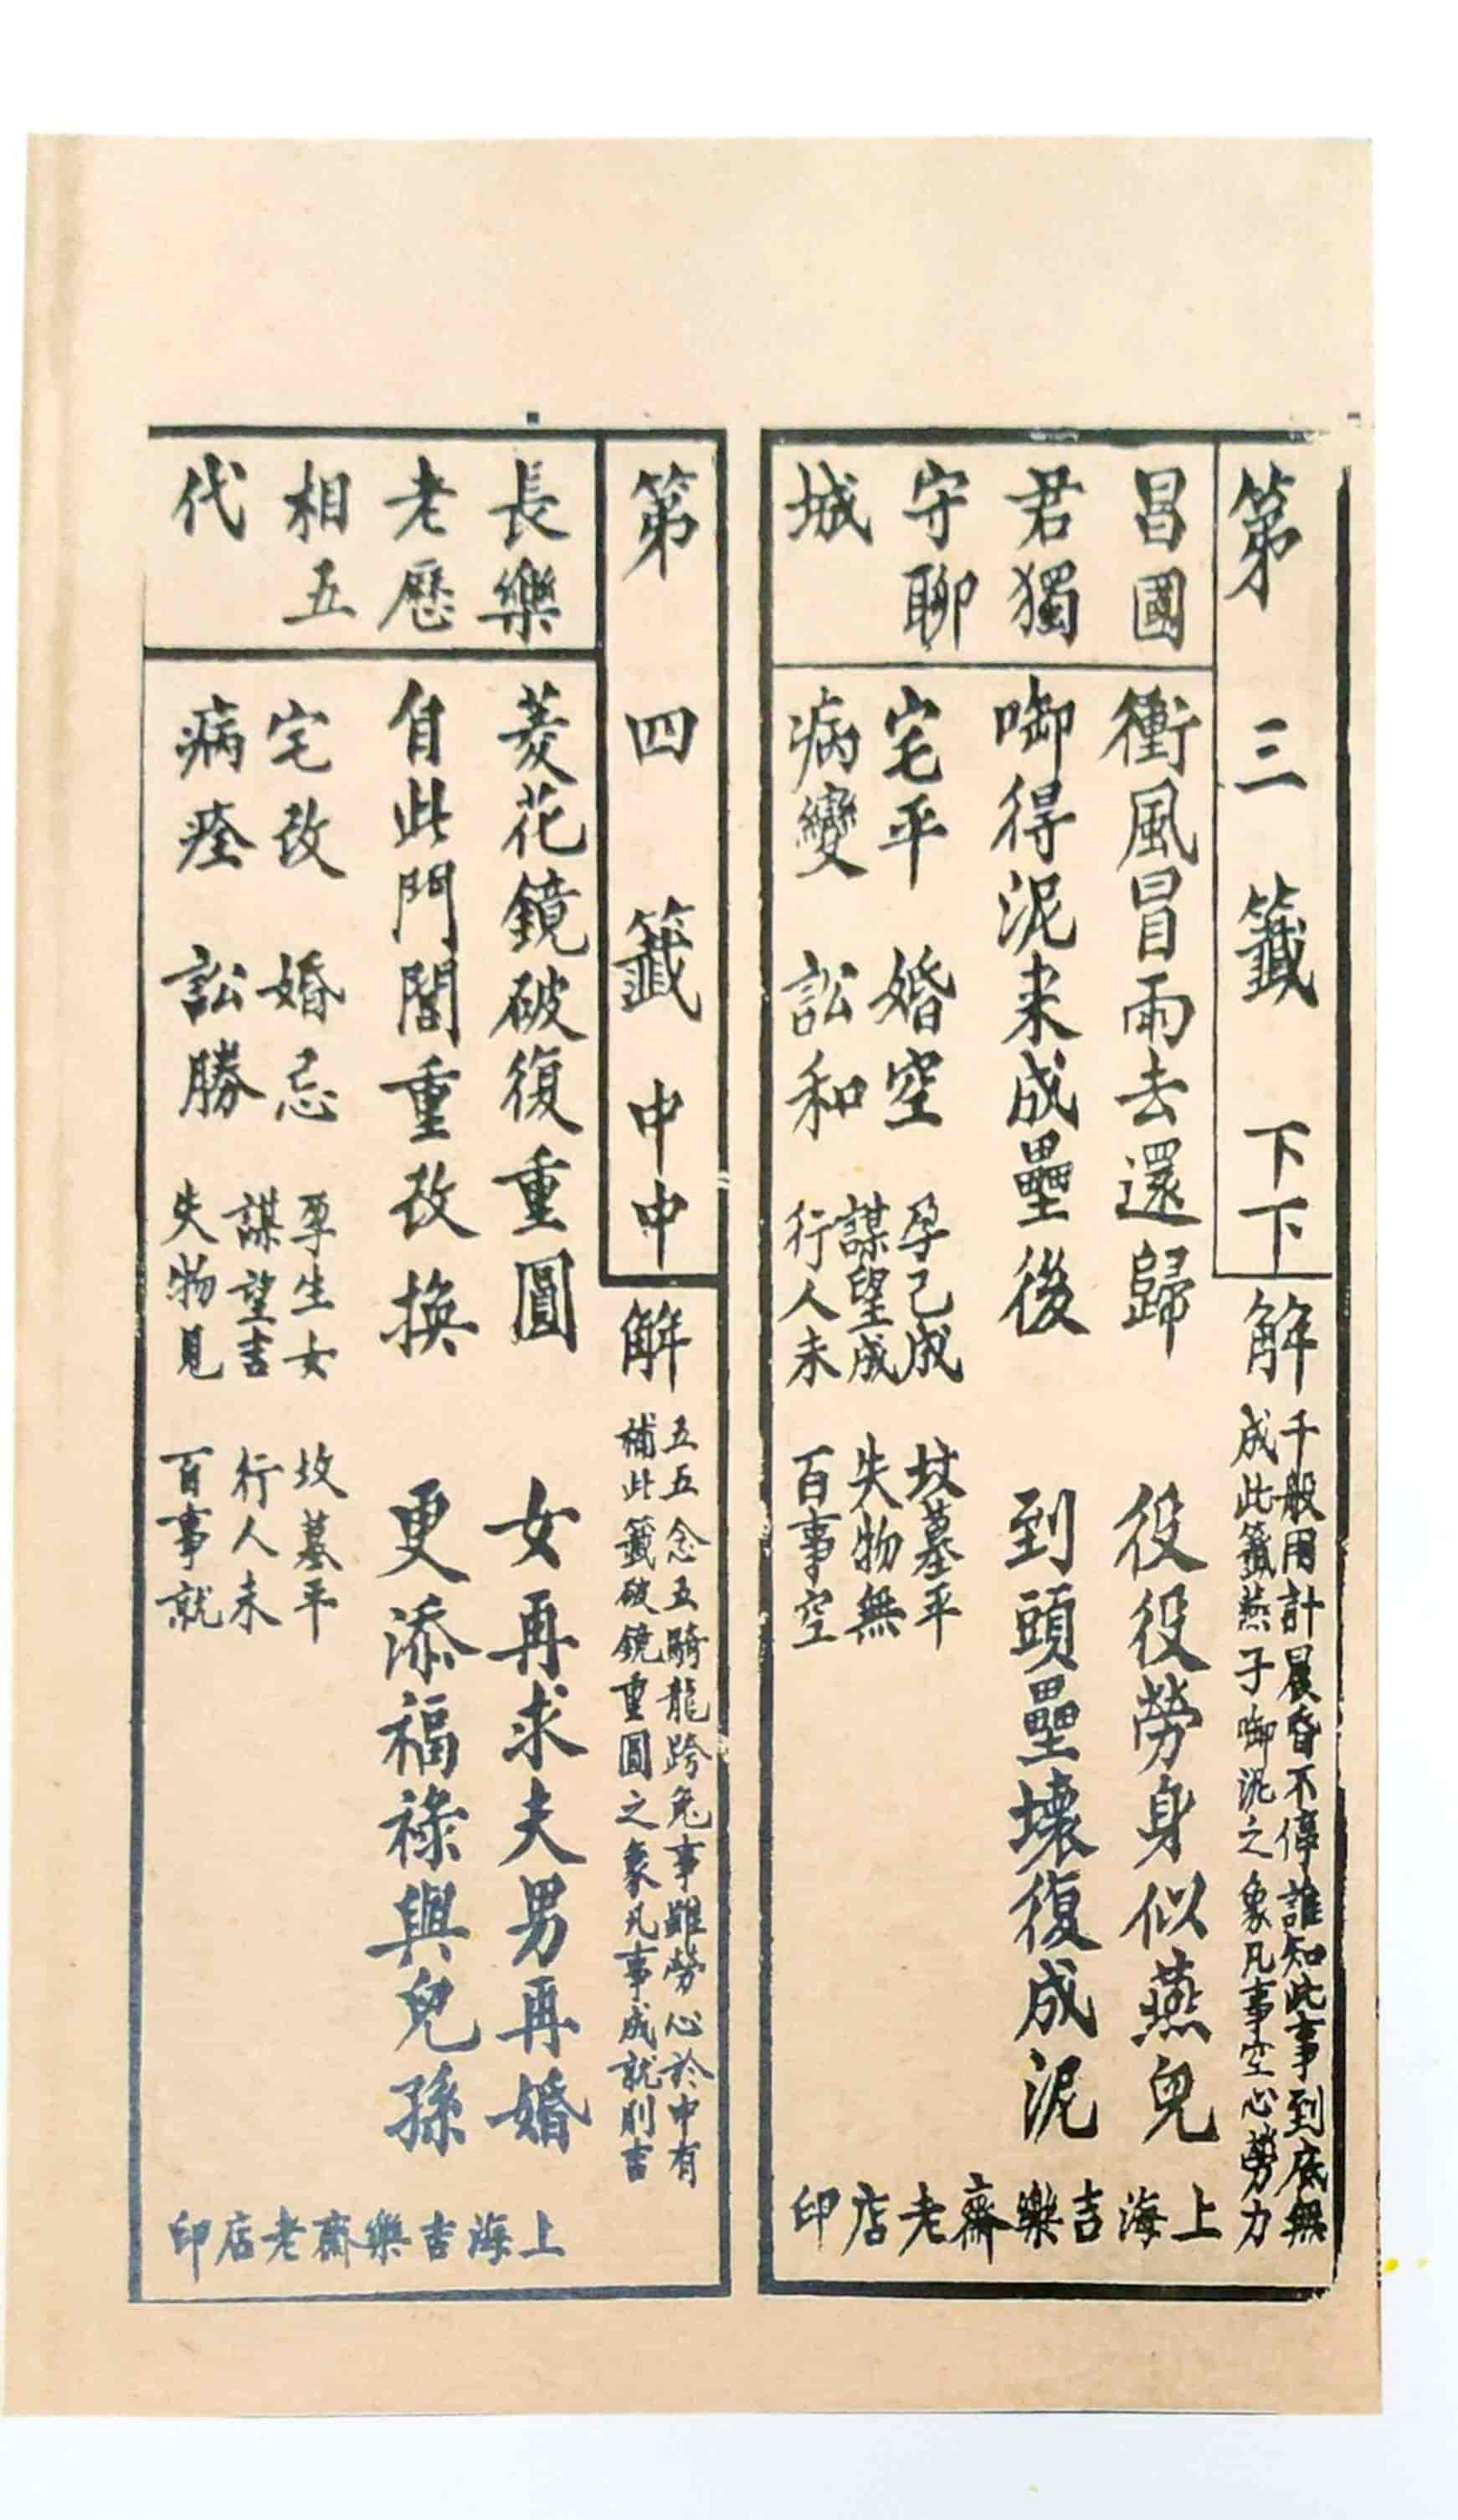 第三籤 下下
解
千般用計晨昏不停誰知此事到底無
成此籤燕子啣泥之象凡事空心勞力
昌國
君獨
守聊
城
衝風冒雨去還歸 役役勞身似燕兒
啣得泥来成壘後 到頭壘壞復成泥
宅平 婚空 孕己成 坟墓平
謀望成 失物無
病變 訟和 行人未 百事空
上海吉樂齋老店印
第四籤 中中
解
五五念五騎龍跨兔事雖勞心於中有
補此籤破鏡重圓之象凡事成就則吉
長樂
老歷
相五
代
菱花鏡破復重圓 女再求夫男再婚
自此門閭重改換 更添福祿與兒孫
宅改 婚忌 孕生女 坟墓平
謀望吉 行人未
病痊 訟勝 失物見 百事就
上海吉樂齋老店印